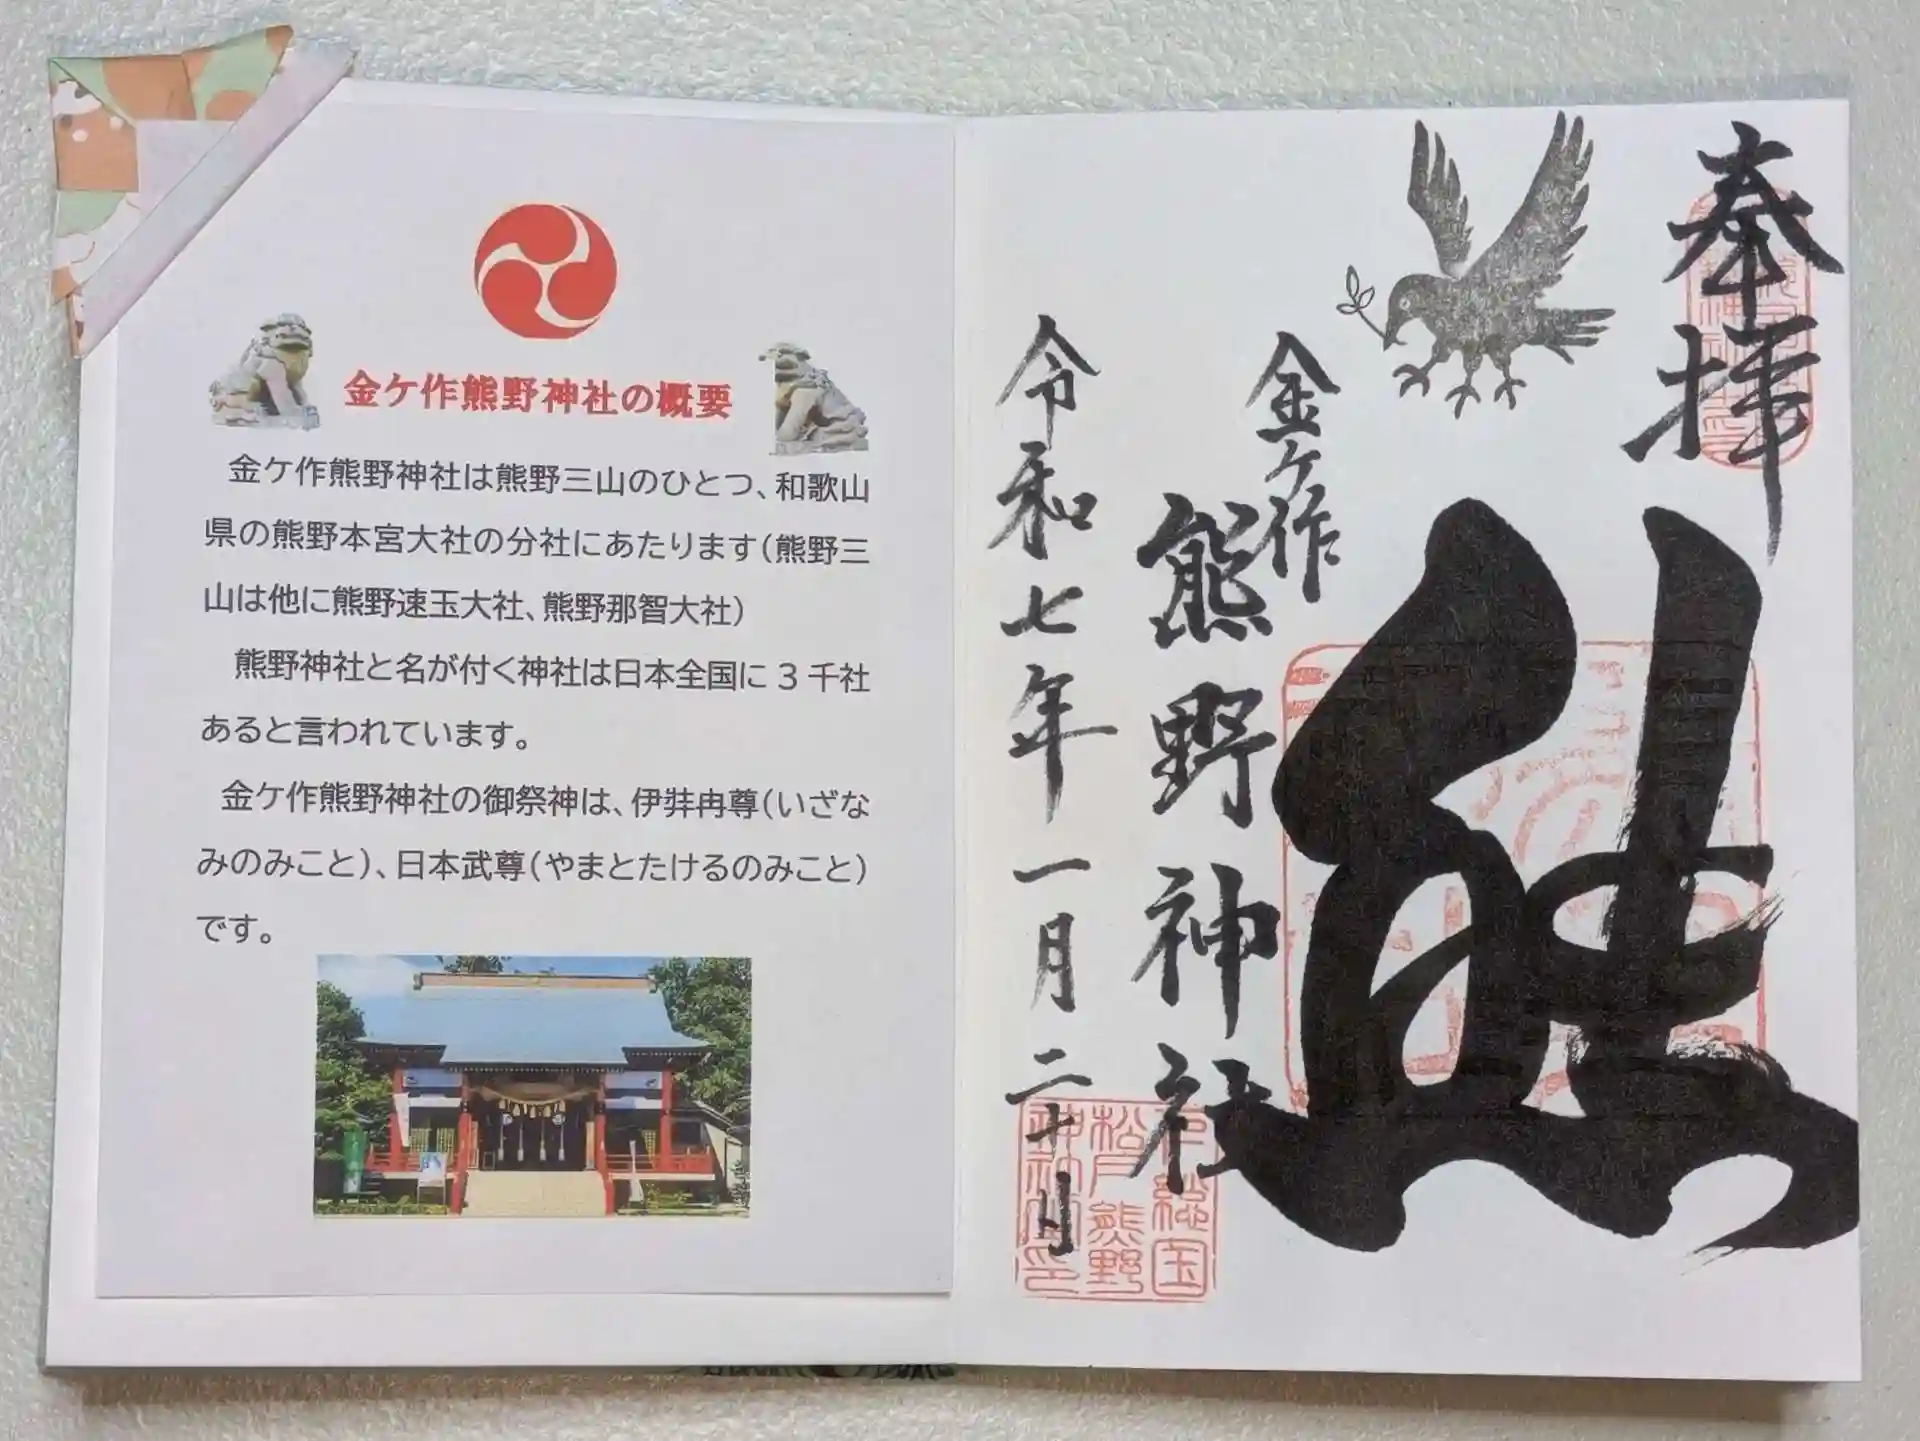 金ケ作熊野神社の概要
金ケ作熊野神社は熊野三山のひとつ、和歌山
県の熊野本宮大社の分社にあたります(熊野三
山は他に熊野速玉大社、熊野那智大社)
熊野神社と名が付く神社は日本全国に3千社
あると言われています。
金ケ作熊野神社の御祭神は、伊弉冉尊(いざな
みのみこと)、日本武尊(やまとたけるのみこと)
です。
奉拝
熊
金ケ作
熊野神社
令和七年一月二十日
下総国
松戸熊野